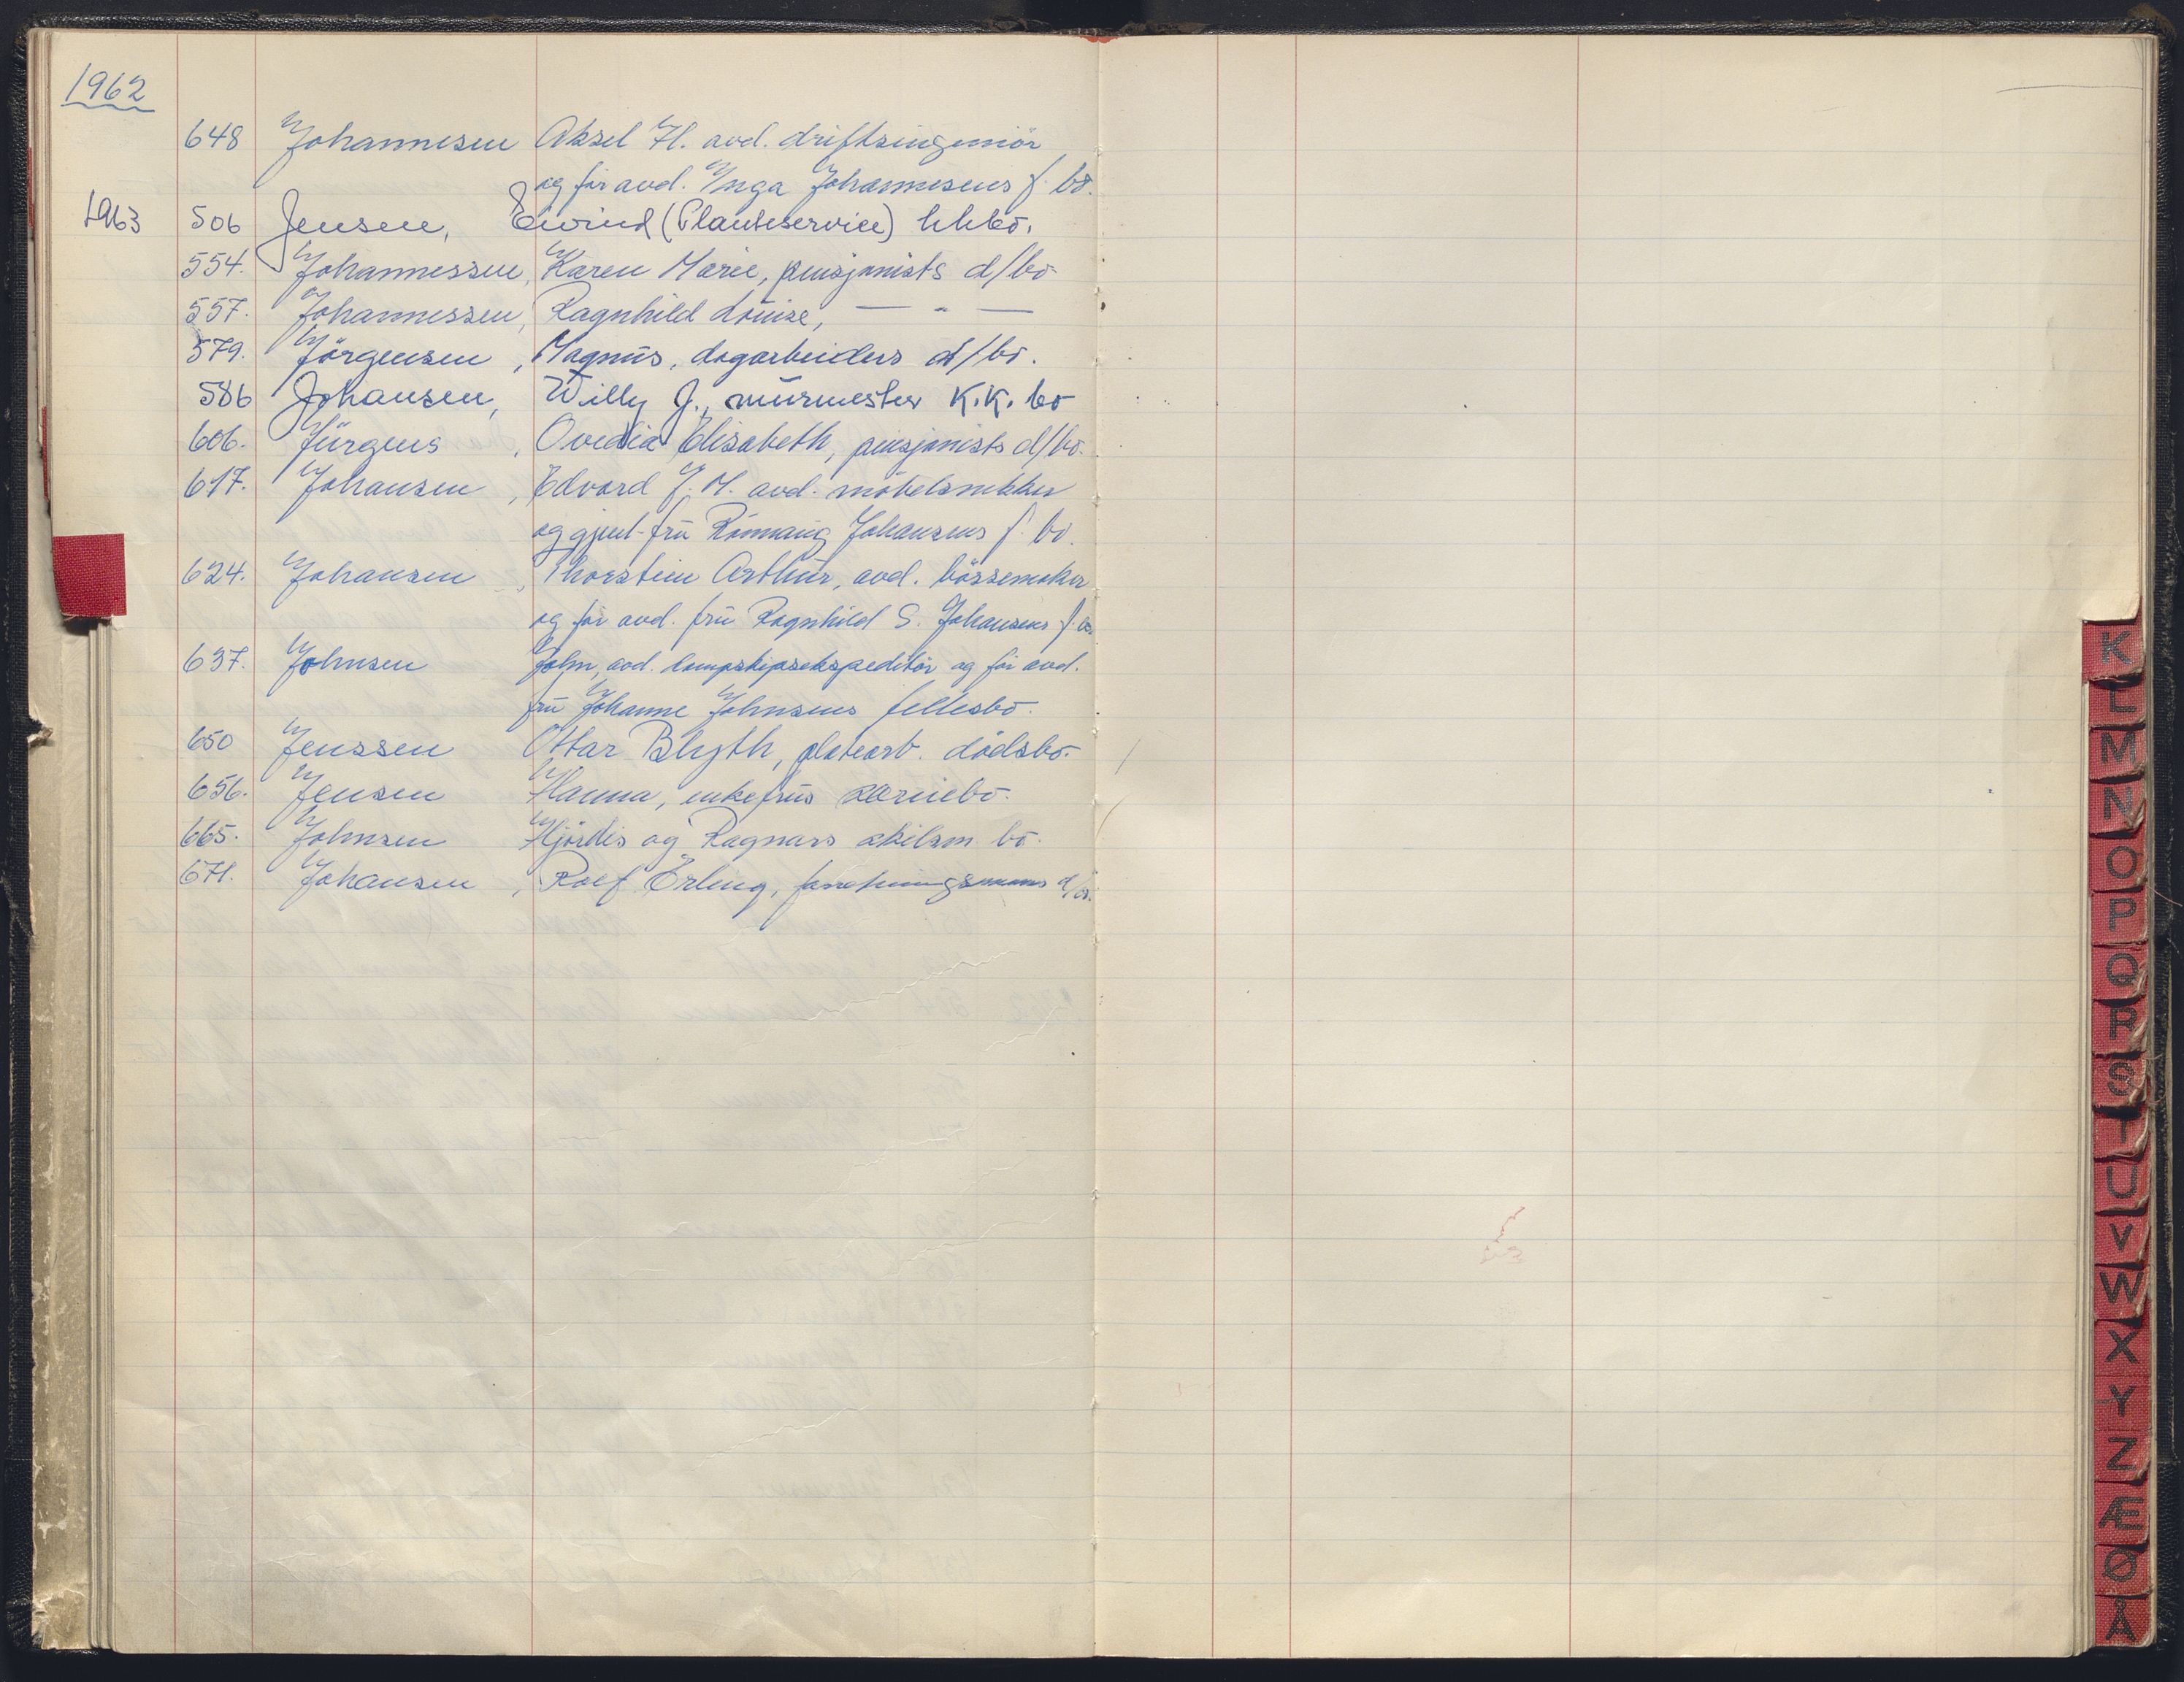 1962
648 Johannesen Aksel H. avd. driftsingeniör
og før avd. Inga Johannesens f. bo.
1963 506 Jensen, Eivind (Planteservice) kkbo.
554. Johannessen, Karen Marie, pensjonists d/bo
557. Johannessen, Ragnhild Louise, — " —
579. Jörgensen, Magnus, dagarbeiders d/bo.
586 Johansen, Willy J., murmester K.K. bo
606. Jürgens, Ovedia Elisabeth, pensjonists d/bo.
617. Johansen, Edvard J. M. avd. möbelsnekker
og gjenl. fru Rönnaug Johansens f. bo.
624. Johansen, Thorstein Arthur, avd. bössemaker
og før avd. fru Ragnhild S. Johansens f. bo.
637. Johnsen John, avd. dampskipsekspeditör og før avd.
fru Johanne Johnsens fellesbo.
650 Jenssen Ottar Blyth, platearb. dödsbo.
656. Jensen Hanna, enkefrus særiebo.
665. Johnsen Hjördis og Ragnars skilsm. bo.
671. Johansen, Rolf Erling, forretningsmanns d/bo.
K
L
M
N
O
P
Q
R
S
T
U
V
W
X
Y
Z
Æ
Ø
Å